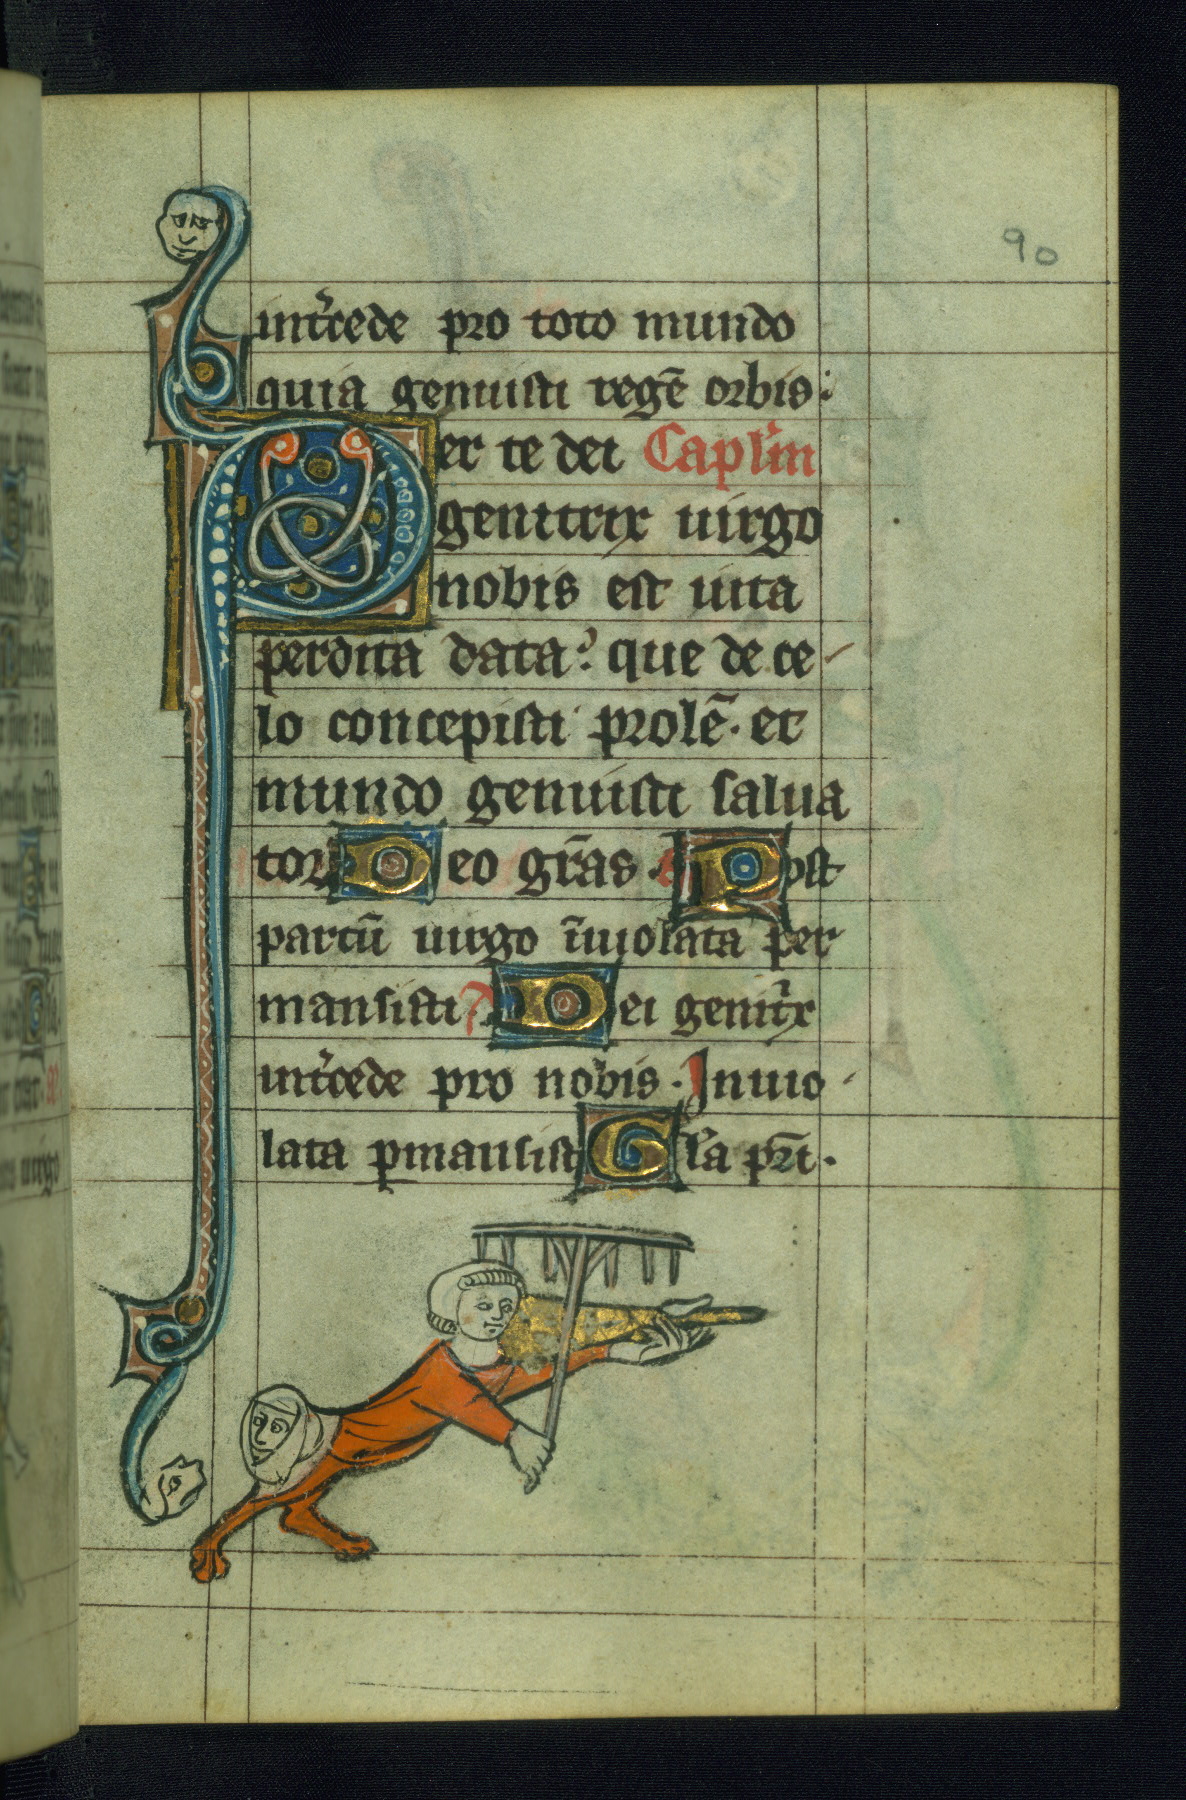 90
int̾cede pro toto mundo
quia genuisti regē orbis:
Per te dei Capl̾m
genitrix uirgo
nobis est uita
perdita data? que de ce-
lo concepisti prolē. et
mundo genuisti salua
tor Deo gr̄as. Post
partū uirgo īuiolata per
mansisti Dei genit̾x
int̾cede pro nobis. Inuio-
lata ꝑmansisti Gl̾a pr̄i.